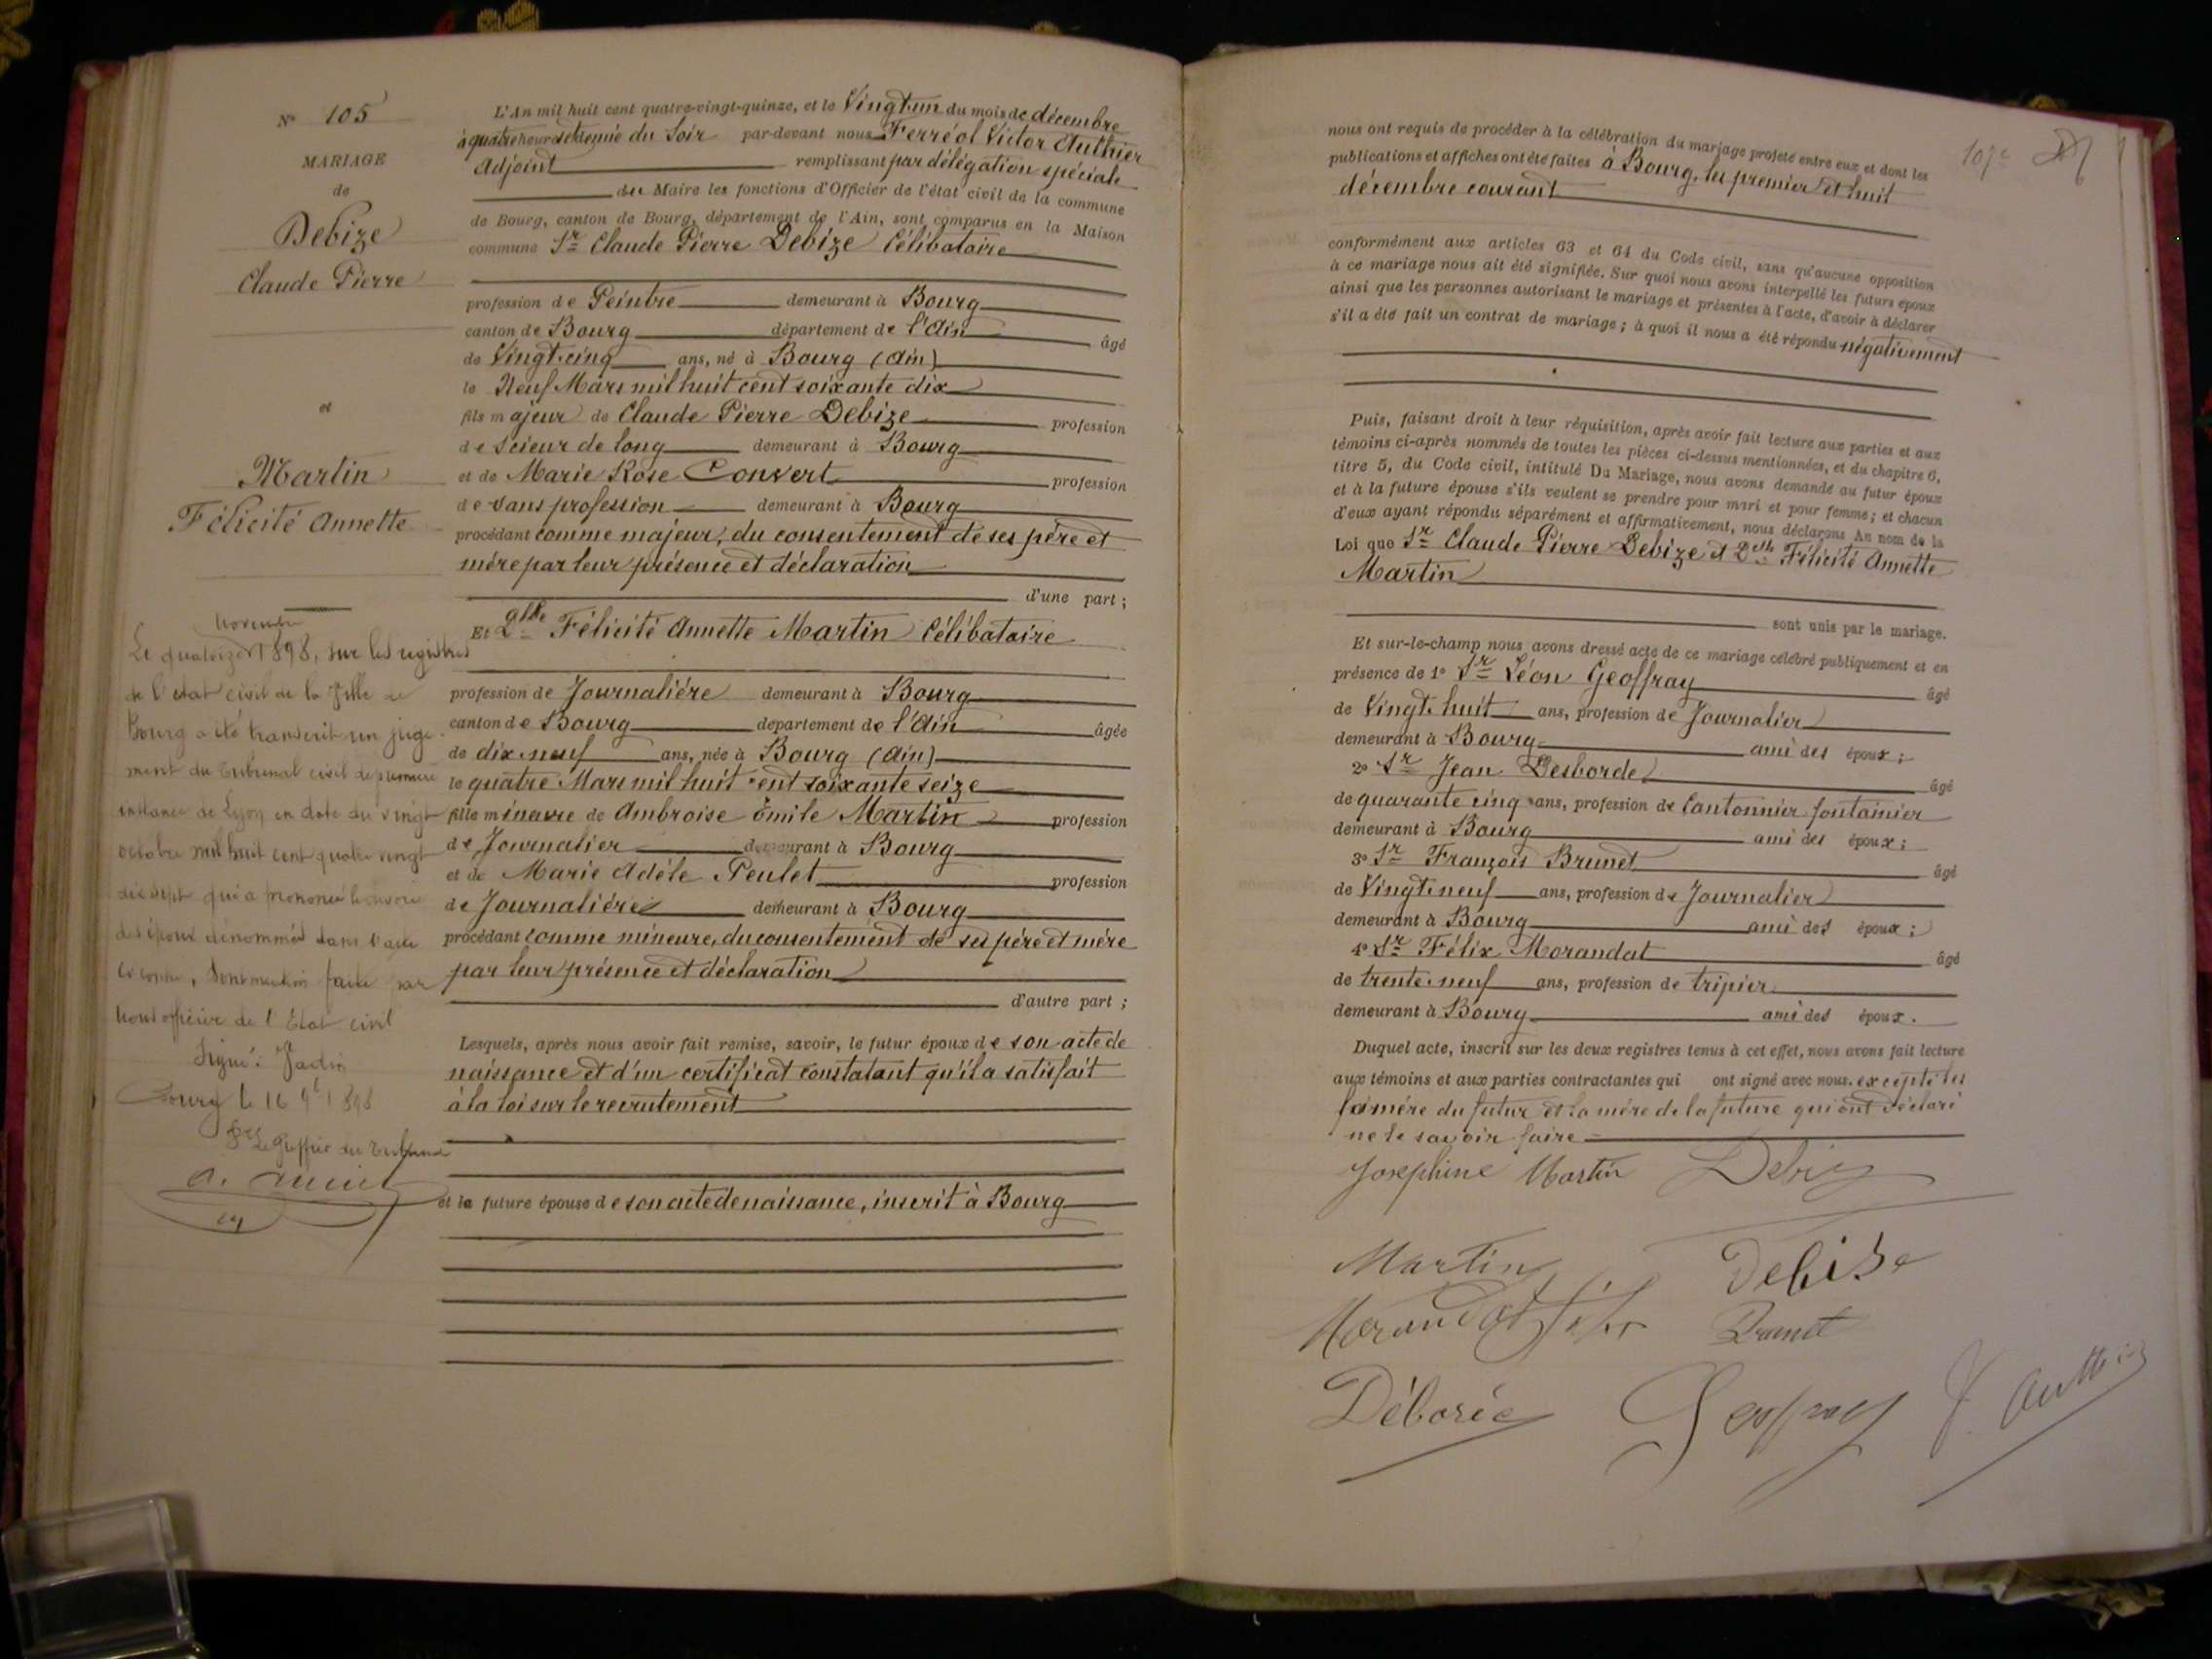 N° 105
MARIAGE
de
Debize
Claude Pierre
et
Martin
Félicité Annette
novembre
Le quatorze 1898, sur les registres
de l'état civil de la Ville de
Bourg a été transcrit un juge-
ment du Tribunal civil de première
instance de Lyon en date du vingt
octobre mil huit cent quatre vingt
dix sept qui a prononcé le divorce
des époux dénommés dans l'acte
ci contre, dont mention faite par
nous officier de l'Etat civil
Signé:
Bourg le 16 9bre 1898
Le Greffier du Tribunal
L'An mil huit cent quatre-vingt-quinze, et le Vingt un du mois de décembre
à quatre heures et demie du Soir par-devant nous Ferréol Victor Authier
Adjoint remplissant par délégation spéciale
du Maire les fonctions d'Officier de l'état civil de la commune
de Bourg, canton de Bourg, département de l'Ain, sont comparus en la Maison
commune Sr Claude Pierre Debize Célibataire
profession de Peintre demeurant à Bourg
canton de Bourg département de l'Ain âgé
de Vingt cinq ans, né à Bourg (Ain)
le Neuf Mars mil huit cent soixante dix
fils majeur de Claude Pierre Debize profession
de Scieur de long demeurant à Bourg
et de Marie Rose Convert profession
de sans profession demeurant à Bourg
procédant comme majeur, du consentement de ses père et
mère par leur présence et déclaration
d'une part ;
Et Dlle Félicité Annette Martin Célibataire
profession de Journalière demeurant à Bourg
canton de Bourg departement de l'Ain âgée
de dix neuf ans, née à Bourg (Ain)
le quatre Mars mil huit cent soixante seize
fille mineure de Ambroise Emile Martin profession
de Journalier demeurant à Bourg
et de Marie Adèle Peulet profession
de Journalière demeurant à Bourg
procédant comme mineure, du consentement de ses père et mère
par leur présence et déclaration
d'autre part ;
Lesquels, après nous avoir fait remise, savoir, le futur époux de son acte de
naissance et d'un certificat constatant qu'il a satisfait
à la loi sur le recrutement
et la future épouse de son acte de naissance, inscrit à Bourg
107e
nous ont requis de procéder à la célébration du mariage projeté entre eux et dont les
publications et affiches ont été faites à Bourg, les premier et huit
décembre courant
conformément aux articles 63 et 64 du Code civil, sans qu'aucune opposition
à ce mariage nous ait été signifiée. Sur quoi nous avons interpellé les futurs époux
ainsi que les personnes autorisant le mariage et présentes à l'acte, d'avoir à déclarer
s'il a été fait un contrat de mariage ; à quoi il nous a été répondu négativement
Puis, faisant droit à leur réquisition, après avoir fait lecture aux parties et aux
témoins ci-après nommés de toutes les pièces ci-dessus mentionnées, et du chapitre 6,
titre 5, du Code civil, intitulé Du Mariage, nous avons demandé au futur époux
et à la future épouse s'ils veulent se prendre pour mari et pour femme ; et chacun
d'eux ayant répondu séparément et affirmativement, nous déclarons Au nom de la
Loi que Sr Claude Pierre Debize et Dlle Félicité Annette
Martin
sont unis par le mariage.
Et sur-le-champ nous avons dressé acte de ce mariage célébré publiquement et en
présence de 1° Sr Léon Geoffray âgé
de Vingt huit ans, profession de Journalier
demeurant à Bourg ami des époux ;
2° Sr Jean Desborde âgé
de quarante cinq ans, profession de Cantonnier fontainier
demeurant à Bourg ami des époux ;
3° Sr François Brunet âgé
de Vingt neuf ans, profession de Journalier
demeurant à Bourg ami des époux ;
4° Sr Félix Morandat âgé
de trente neuf ans, profession de tripier
demeurant à Bourg ami des époux.
Duquel acte, inscrit sur les deux registres tenus à cet effet, nous avons fait lecture
aux témoins et aux parties contractantes qui ont signé avec nous. excepté
la mère du futur et la mère de la future qui ont déclaré
ne le savoir faire
Josephine Martin Debize
Martin Debise
Morandat félix Brunet
Déborde Geoffray F. Authier